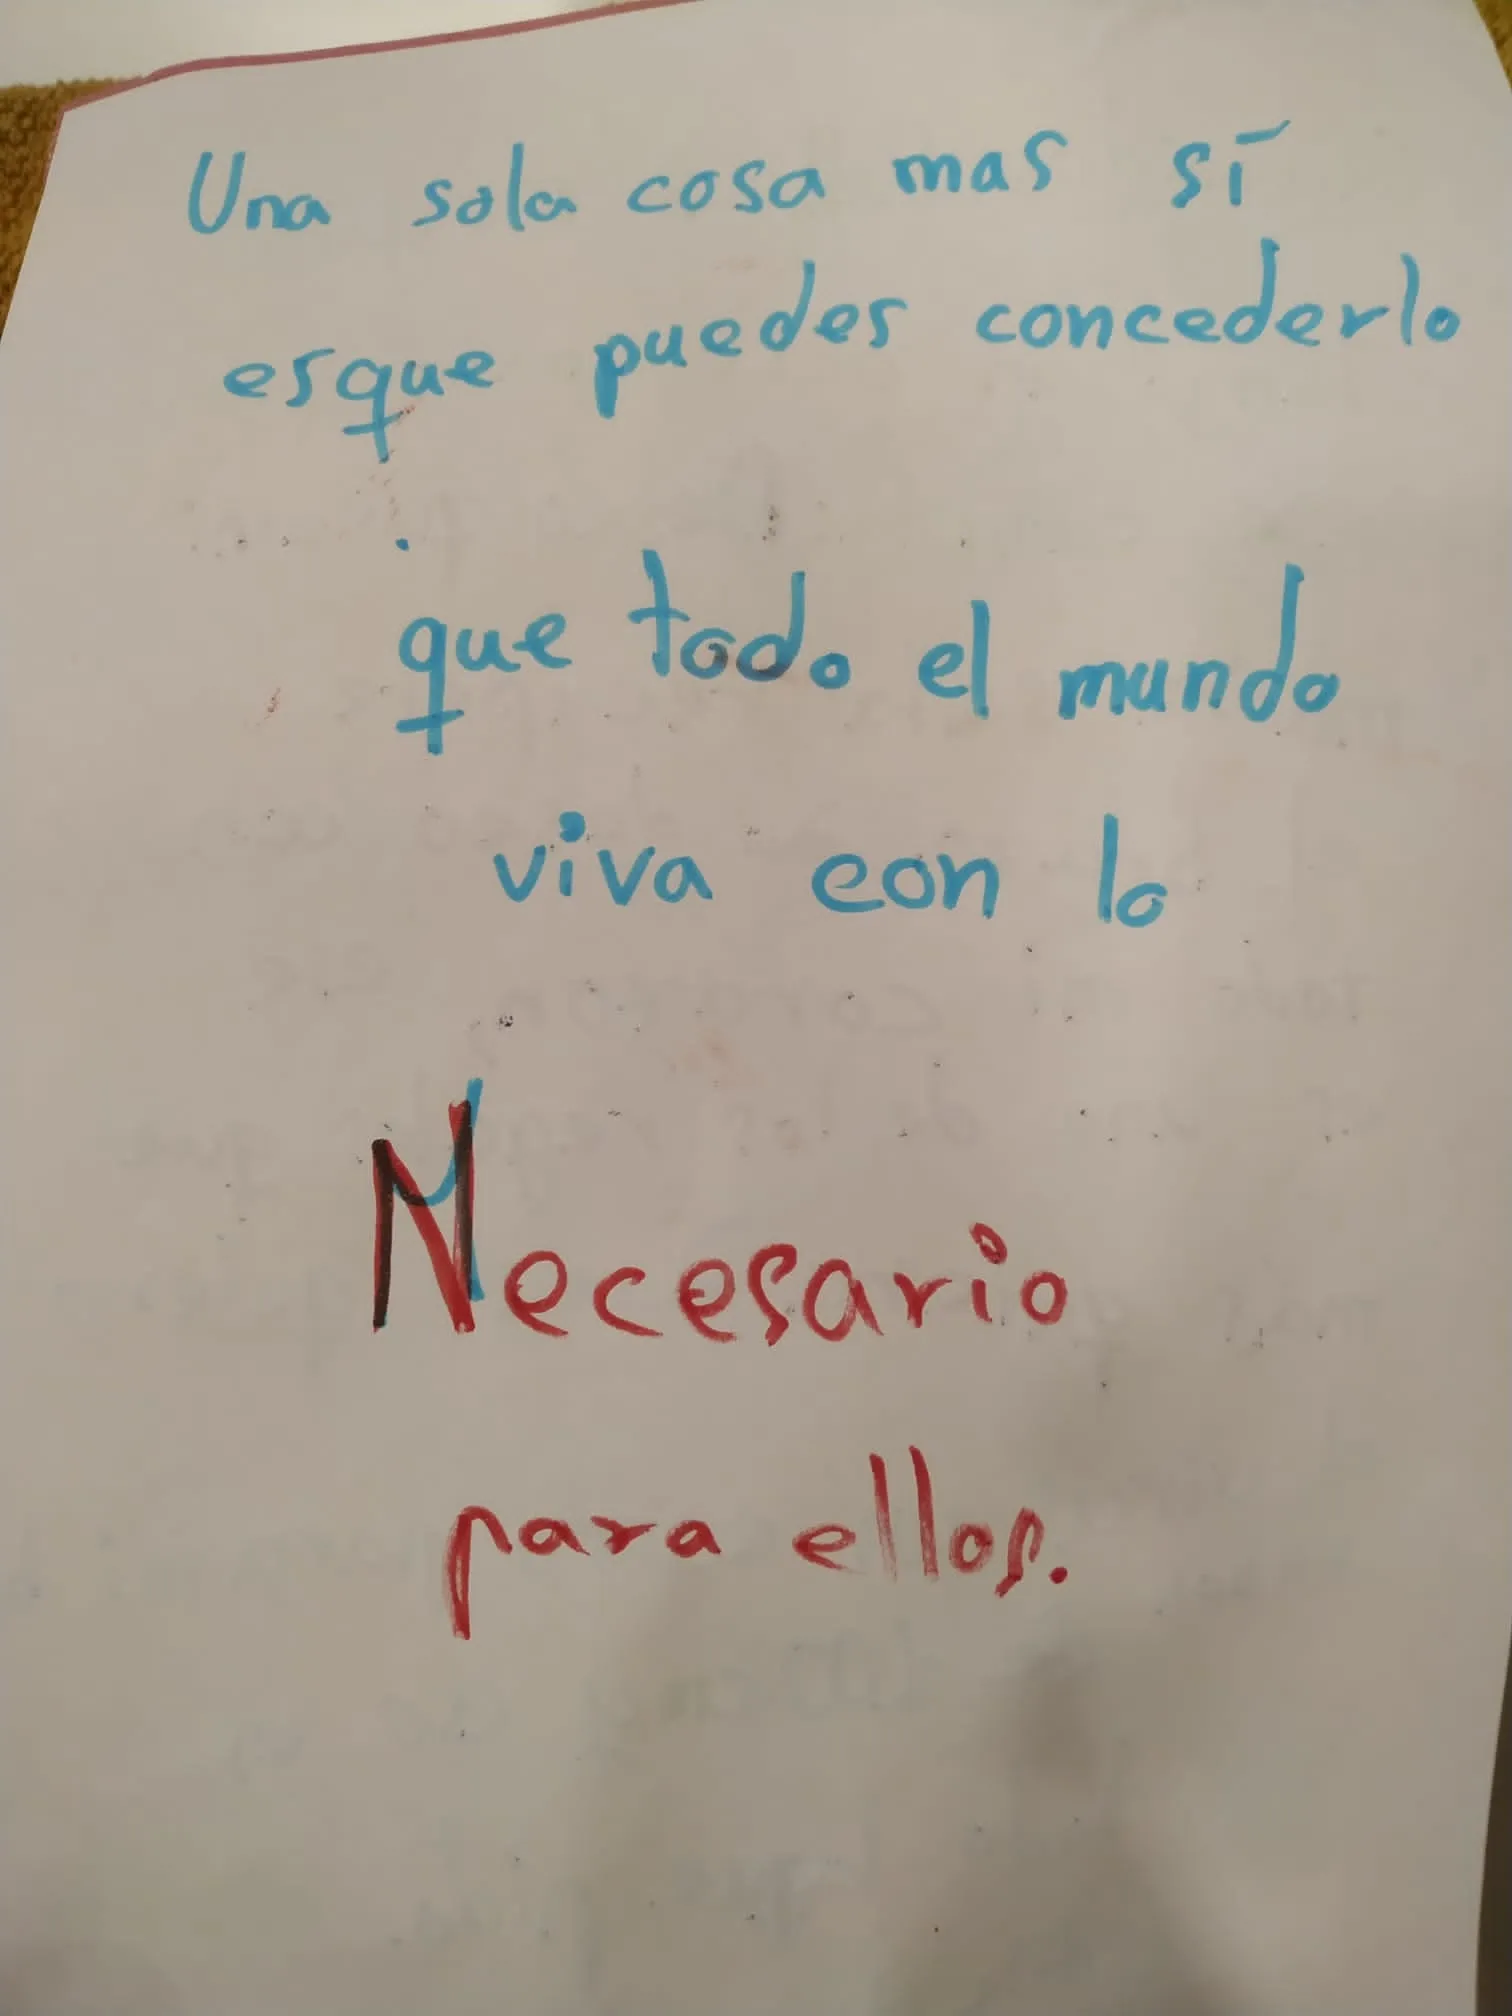 Una sola cosa mas sí
esque puedes concederlo
que todo el mundo
viva con lo
Necesario
para ellos.